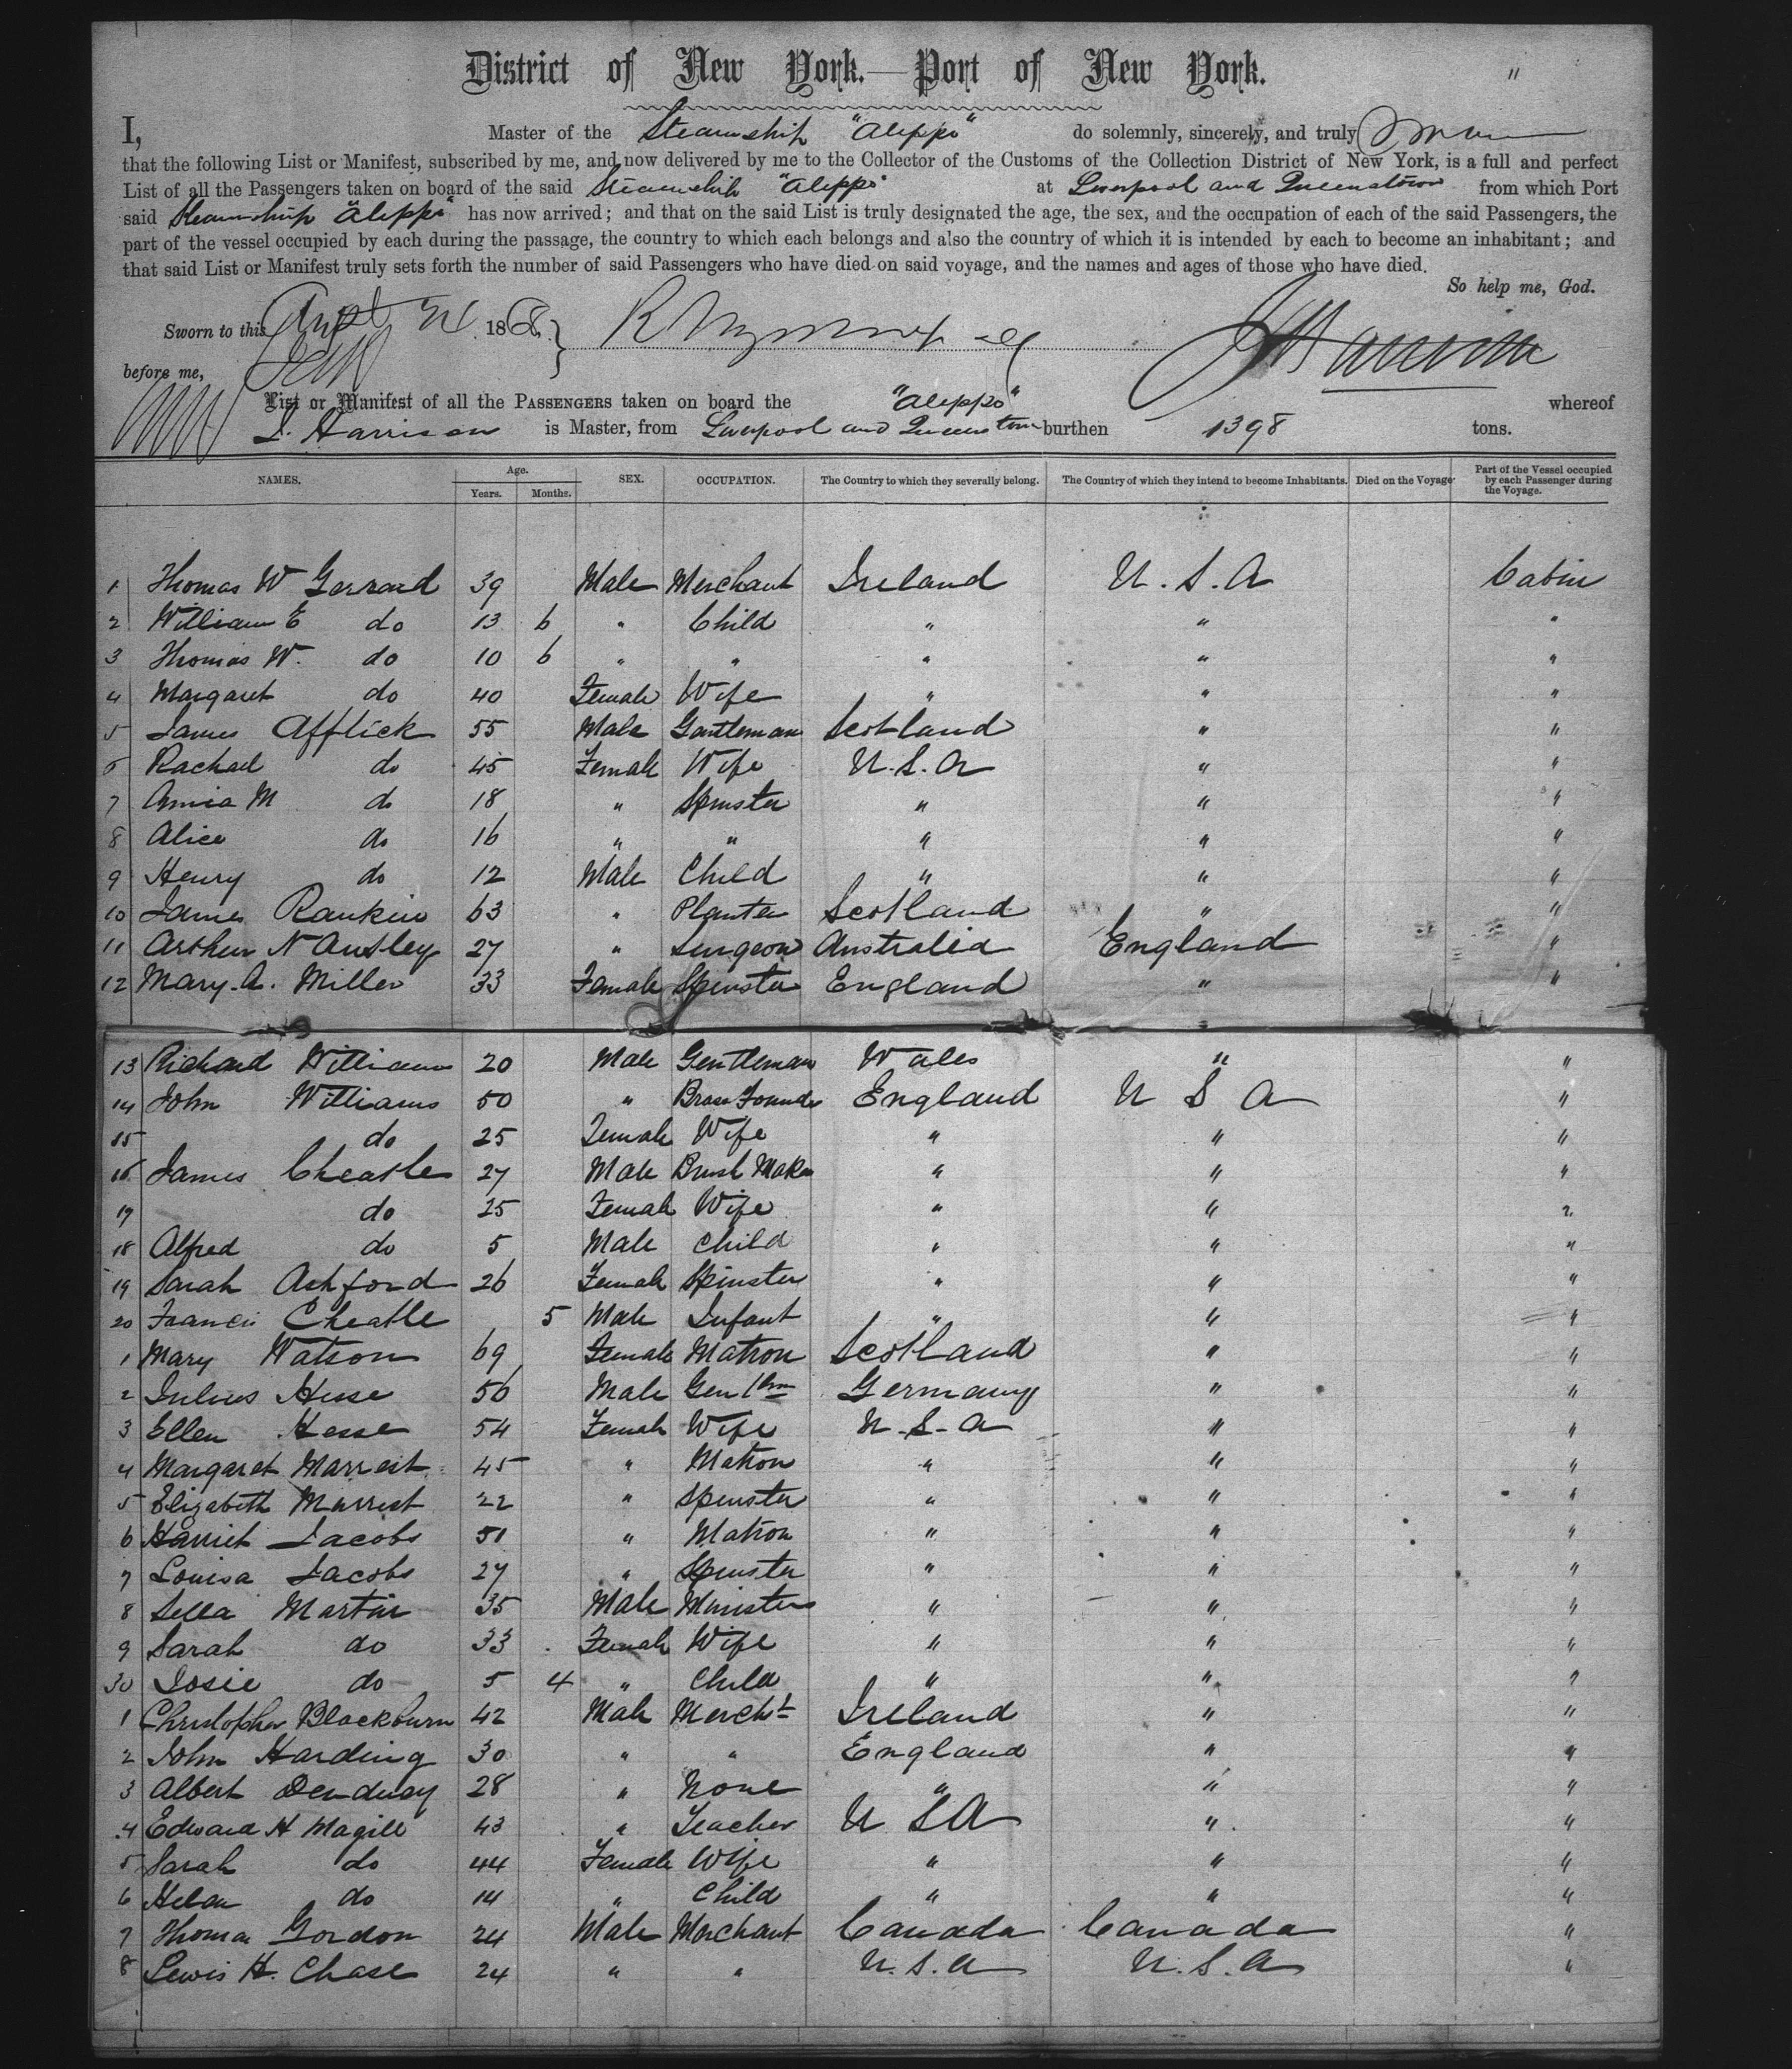 District of New York.—Port of New York. "
I, Master of the Steamship "Aleppo" do solemnly, sincerely, and truly
that the following List or Manifest, subscribed by me, and now delivered by me to the Collector of the Customs of the Collection District of New York, is a full and perfect
List of all the Passengers taken on board of the said Steamship "Aleppo" at Liverpool and Queenstown from which Port
said Steamship "Aleppo" has now arrived; and that on the said List is truly designated the age, the sex, and the occupation of each of the said Passengers, the
part of the vessel occupied by each during the passage, the country to which each belongs and also the country of which it is intended by each to become an inhabitant; and
that said List or Manifest truly sets forth the number of said Passengers who have died on said voyage, and the names and ages of those who have died.
So help me, God.
Sworn to this 1868
before me,
List or Manifest of all the PASSENGERS taken on board the "Aleppo" whereof
J. Harrison is Master, from Liverpool and Queenstown burthen 1398 tons.
NAMES. Age. Years. Months. SEX. OCCUPATION. The Country to which they severally belong. The Country of which they intend to become Inhabitants. Died on the Voyage Part of the Vessel occupied by each Passenger during the Voyage.
1 Thomas W Gerrard 39 Male Merchant Ireland U.S.A Cabin
2 William E do 13 6 " Child " " "
3 Thomas W. do 10 6 " " " " "
4 Margaret do 40 Female Wife " " "
5 James Afflick 55 Male Gentleman Scotland " "
6 Rachael do 45 Female Wife U.S.A " "
7 Annia M do 18 " Spinster " " "
8 Alice do 16 " " " " "
9 Henry do 12 Male Child " " "
10 James Rankin 63 " Planter Scotland " "
11 Arthur N Ansley 27 " Surgeon Australia England "
12 Mary. A. Miller 33 Female Spinster England " "
13 Richard Williams 20 Male Gentleman Wales " "
14 John Williams 50 " Brass Founder England U S A "
15 do 25 Female Wife " " "
16 James Cheatle 27 Male Brush Maker " " "
17 do 25 Female Wife " " "
18 Alfred do 5 Male Child " " "
19 Sarah Ashford 26 Female Spinster " " "
20 Francis Cheatle 5 Male Infant " " "
1 Mary Watson 69 Female Matron Scotland " "
2 Julius Hesse 56 Male Gentlm Germany " "
3 Ellen Hesse 54 Female Wife U.S.A " "
4 Margaret Marrest 45 " Matron " " "
5 Elizabeth Marrest 22 " Spinster " " "
6 Harriet Jacobs 50 " Matron " " "
7 Louisa Jacobs 27 " Spinster " " "
8 Sella Martin 35 Male Minister " " "
9 Sarah do 33 Female Wife " " "
30 Josie do 5 4 " Child " " "
1 Christopher Blackburn 42 Male Mercht Ireland " "
2 John Harding 30 " " England " "
3 Albert 28 " None " " "
4 Edward H Magill 43 " Teacher U S A " "
5 Sarah do 44 Female Wife " " "
6 Helen do 14 " Child " " "
7 Thomas Gordon 24 Male Merchant Canada Canada "
8 Lewis H. Chase 24 " " U.S.A U.S.A "